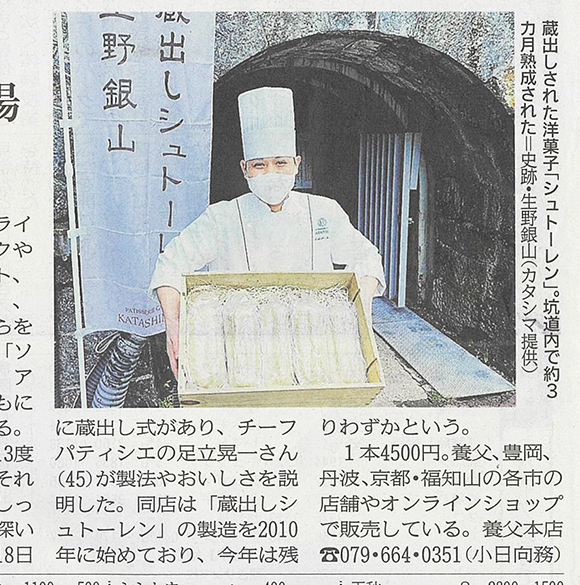 蔵出しされた洋菓子「シュトーレン」。坑道内で約3
カ月熟成された＝史跡・生野銀山（カタシマ提供）
蔵出しシュトーレ
生野銀山
KATASHI
場
ライ
クや
ト、
、
らを
「ソ
ア
もに
る。
3度
それ
しっ
深い
8日
に蔵出し式があり、チーフ
パティシエの足立晃一さん
(45)が製法やおいしさを説
明した。同店は「蔵出しシ
ュトーレン」の製造を2010
年に始めており、今年は残
りわずかという。
1本4500円。養父、豊岡、
丹波、京都・福知山の各市の
店舗やオンラインショップ
で販売している。養父本店
☎079・664・0351（小日向務）